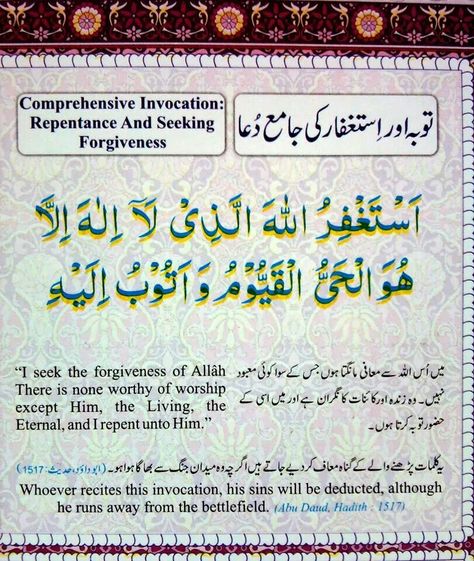 Comprehensive Invocation:
Repentance And Seeking
Forgiveness
توبہ اور اِستغفار کی جامع دُعا
اَسْتَغْفِرُ اللّٰهَ الَّذِىْ لَآ اِلٰهَ اِلَّا
هُوَ الْحَىُّ الْقَيُّوْمُ وَاَتُوْبُ اِلَيْهِ
“I seek the forgiveness of Allâh
There is none worthy of worship
except Him, the Living, the
Eternal, and I repent unto Him.”
میں اُس اللہ سے معافی مانگتا ہوں جس کے سوا کوئی معبود
نہیں۔ وہ زندہ اور کائنات کا نگران ہے اور میں اسی کے
حضور توبہ کرتا ہوں۔
یہ کلمات پڑھنے والے کے گناہ معاف کر دیے جاتے ہیں اگرچہ وہ میدان جنگ سے بھاگا ہوا ہو۔ (ابوداؤد، حدیث: 1517)
Whoever recites this invocation, his sins will be deducted, although
he runs away from the bettlefield. (Abu Daud, Hadith : 1517)